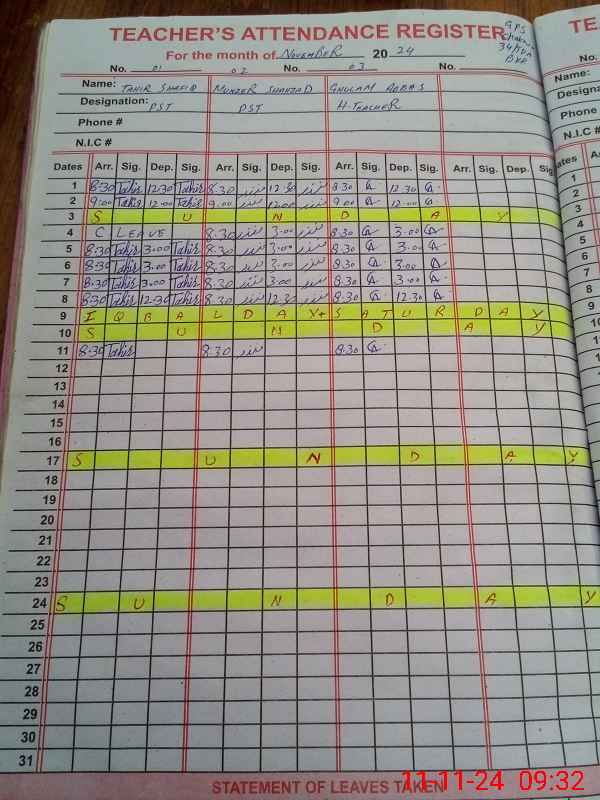 TEACHER'S ATTENDANCE REGISTER
For the month of NOVEMBER 20 24
GPS
No. 01 02 No. 03 No.
Name: TAHIR SHAFIQ MUNEER SHAHZAD GHULAM ABBAS
Designation: PST PST H-TEACHER
Phone #
N.I.C #
Dates Arr. Sig. Dep. Sig. Arr. Sig. Dep. Sig. Arr. Sig. Dep. Sig. Arr. Sig. Dep. Sig.
1 8:30 Tahir 12:30 Tahir 8:30 منیر 12:30 منیر 8:30 GA 12:30 GA
2 9:00 Tahir 12:00 Tahir 9:00 منیر 12:00 منیر 9:00 GA 12:00 GA
3 S U N D A Y
4 C LEAVE 8:30 منیر 3:00 منیر 8:30 GA 3:00 GA
5 8:30 Tahir 3:00 Tahir 8:30 منیر 3:00 منیر 8:30 GA 3:00 GA
6 8:30 Tahir 3:00 Tahir 8:30 منیر 3:00 منیر 8:30 GA 3:00 GA
7 8:30 Tahir 3:00 Tahir 8:30 منیر 3:00 منیر 8:30 GA 3:00 GA
8 8:30 Tahir 12:30 Tahir 8:30 منیر 12:30 منیر 8:30 GA 12:30 GA
9 I Q B A L D A Y + S A T U R D A Y
10 S U N D A Y
11 8:30 Tahir 8:30 منیر 8:30 GA
12
13
14
15
16
17 S U N D A Y
18
19
20
21
22
23
24 S U N D A Y
25
26
27
28
29
30
31
STATEMENT OF LEAVES TAKEN
11-11-24 09:32
TE
No.
Name:
Designa
Phone #
N.I.C #
Dates A
1
2
3
4
5
6
7
8
9
10
11
12
13
14
15
16
17
18
19
20
21
22